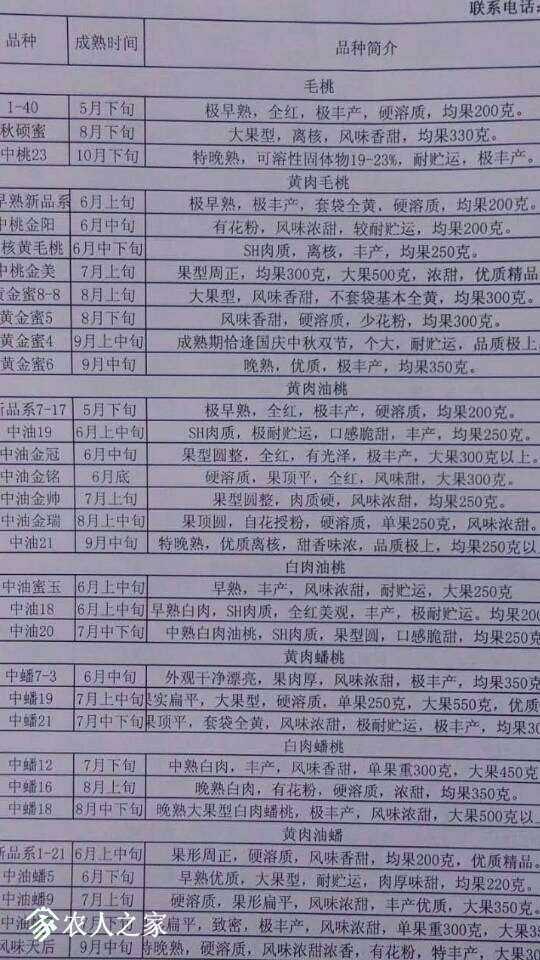 联系电话:
品种 成熟时间 品种简介
毛桃
1-40 5月下旬 极早熟，全红，极丰产，硬溶质，均果200克。
秋硕蜜 8月下旬 大果型，离核，风味香甜，均果330克。
中桃23 10月下旬 特晚熟，可溶性固体物19-23%，耐贮运，极丰产。
黄肉毛桃
早熟新品系 6月上旬 极早熟，极丰产，套袋全黄，硬溶质，均果200克。
中桃金阳 6月中旬 有花粉，风味浓甜，较耐贮运，均果200克。
核黄毛桃 6月中下旬 SH肉质，离核，丰产，均果250克。
中桃金美 7月上旬 果型周正，均果300克，大果500克，浓甜，优质精品
黄金蜜8-8 8月上旬 大果型，风味香甜，不套袋基本全黄，均果300克。
黄金蜜5 8月下旬 风味香甜，硬溶质，少花粉，均果300克。
黄金蜜4 9月上中旬 成熟期恰逢国庆中秋双节，个大，耐贮运，品质极上
黄金蜜6 9月中旬 晚熟，优质，极丰产，均果350克。
黄肉油桃
新品系7-17 5月下旬 极早熟，全红，极丰产，硬溶质，均果200克。
中油19 6月上中旬 SH肉质，极耐贮运，口感脆甜，丰产，均果250克。
中油金冠 6月中旬 果型圆整，全红，有光泽，极丰产，大果300克以上。
中油金铭 6月底 硬溶质，果顶平，全红，风味甜，大果300克。
中油金帅 7月上旬 果型圆整，肉质硬，风味浓甜，均果250克。
中油金瑞 8月上中旬 果顶圆，自花授粉，硬溶质，单果250克，风味浓甜。
中油21 9月中旬 特晚熟，优质离核，甜香味浓，品质极上，均果250克以
白肉油桃
中油蜜玉 6月上中旬 早熟，丰产，风味浓甜，耐贮运，大果250克
中油18 6月上中旬 早熟白肉，SH肉质，全红美观，丰产，极耐贮运。均果200
中油20 7月中下旬 中熟白肉油桃，SH肉质，果型圆，口感脆甜，均果250克
黄肉蟠桃
中蟠7-3 6月中旬 外观干净漂亮，果肉厚，风味甜，极丰产，均果350克
中蟠19 7月上中旬 果实扁平，大果型，硬溶质，单果250克，大果550克，优质
中蟠21 7月中下旬 果顶平，套袋全黄，风味浓甜，极耐贮运，极丰产，均果30
白肉蟠桃
中蟠12 7月下旬 中熟白肉，丰产，风味香甜，单果重300克，大果450克
中蟠16 8月上旬 晚熟白肉，有花粉，硬溶质，浓甜，均果350克。
中蟠18 8月中下旬 晚熟大果型白肉蟠桃，极丰产，风味浓甜，大果500克以上
黄肉油蟠
新品系1-21 6月上中旬 果形周正，硬溶质，风味香甜，均果200克，优质精品
中油蟠5 6月下旬 早熟优质，大果型，耐贮运，肉厚味甜，均果220克。
中油蟠9 7月上旬 硬溶质，果形扁平，风味浓甜，丰产优质，大果350克。
中油 7月中旬 扁平，致密，极丰产，风味浓甜，单果重300克，大果35
风味天后 9月中旬 特晚熟，硬溶质，风味浓甜浓香，有花粉，特丰产，大果30
农人之家